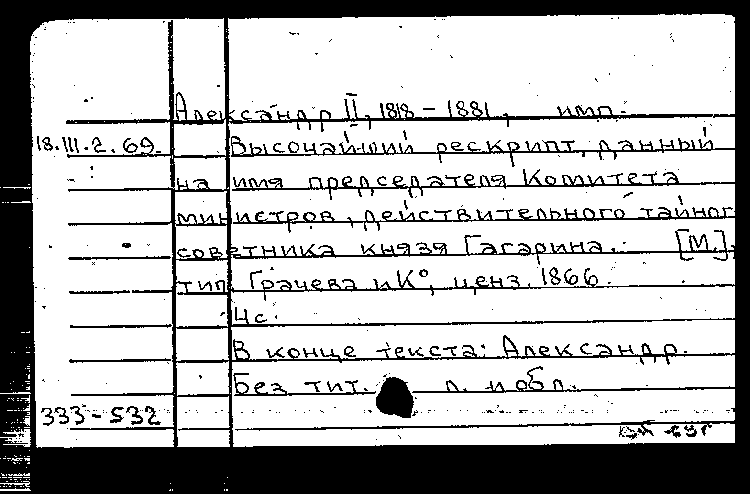 Александр II, 1818 - 1881, имп.
18.III.2.69. Высочайший рескрипт, данный
на имя председателя Комитета
министров, действительного тайног
советника князя Гагарина. [М.],
тип. Грачева и К°, ценз. 1866.
4 с.
В конце текста: Александр.
Без тит. л. и обл.
333-532